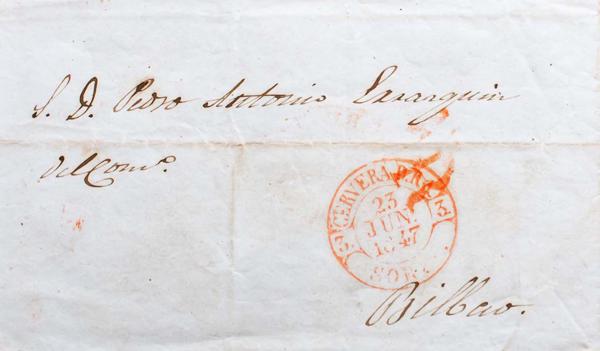 S. D. Pedro Antonio Errazquin
Del Com.o
CERVERA D.R.A.
3 3
23
JUN.
1847
SOR.
Bilbao.